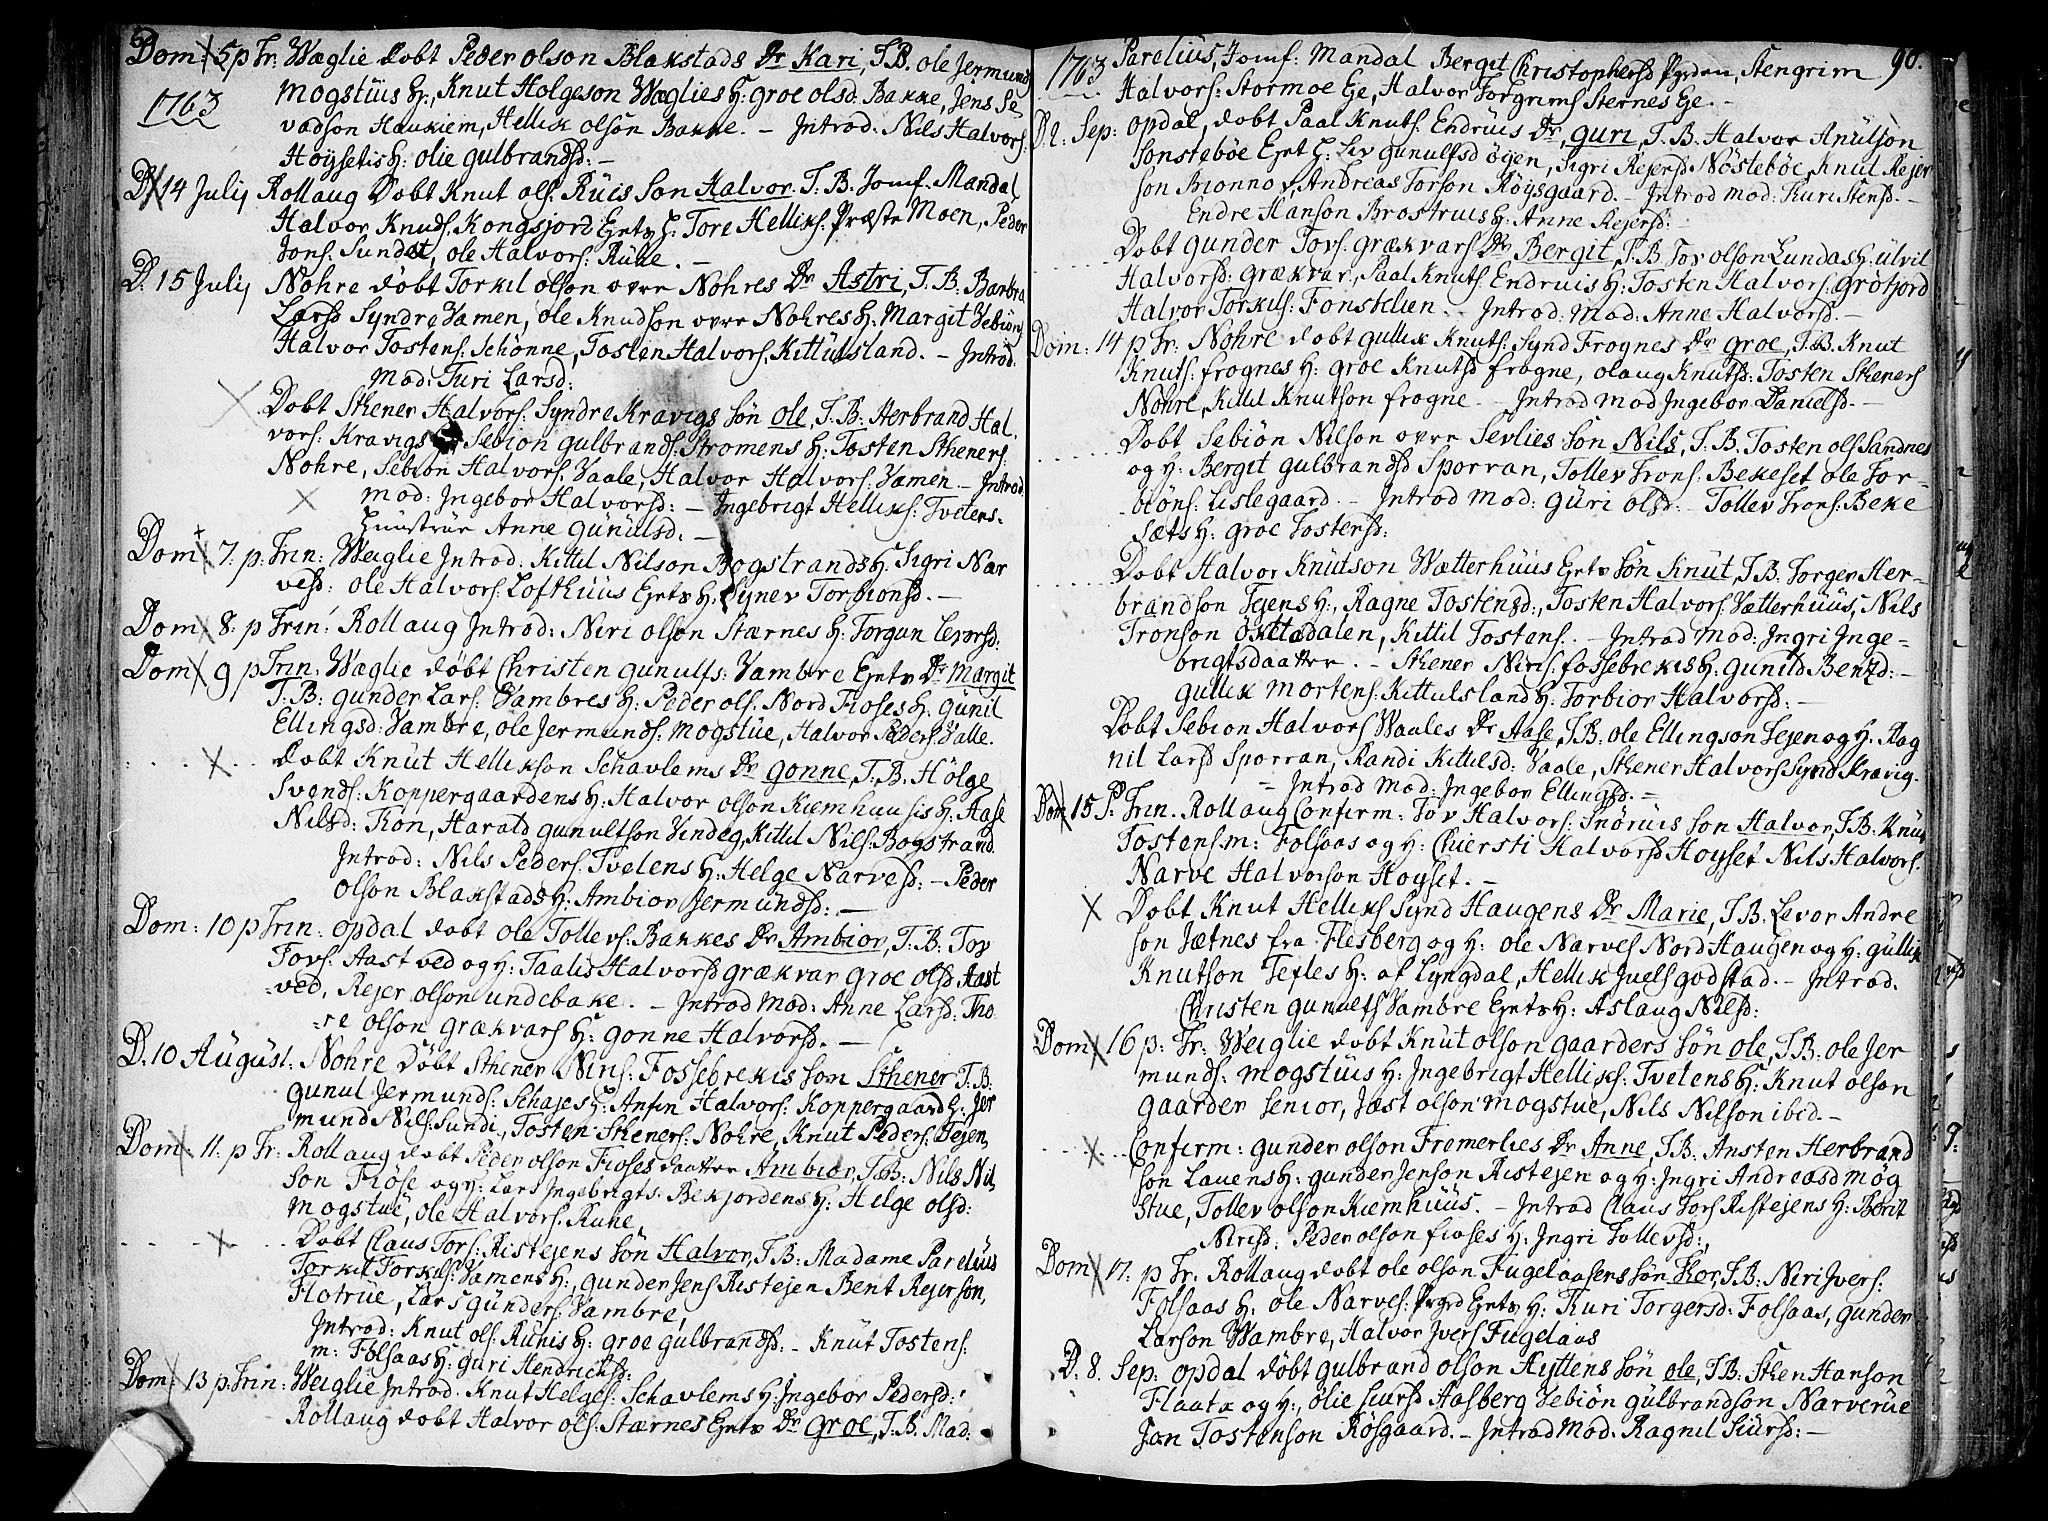 Dom: 5 p Tr: Wæglie Dobt Peder olson Blakstads Dr Kari, T.B. ole Jermund
1763
Mogstüis H:, Knut Holgeson Wæglies H: groe olsd. Bakke, Jens Se
vadson Haukiem, Hellik olsön Bakke. – Introd: Nils Halvors:
Höysetis H: olie gulbrandsd: –
D. 14 Julij Rollaug Dobt Knut ols. Rüis Son Halvor. T. B. Jomf. Mandal
Halvor Knuds. Kongsjord Hellies. Præste Moen, Peder
Jons. Sundet, ole Halvors: Rühe. –
D. 15 Julij Nohre döbt Torkil olson over Nohres Dr Astri, T.B. Barbra
Larsd Syndre Vamen, ole Knudson over Nohres H: Margit Sebiöns
Halvor Tostens. Schönne, Tosten Halvors. Kittülsland. – Introd.
Mod: Turi Larsd:
Dobt Sthener Halvors. Syndre Kravigs Sön ole, T.B. Herbrand Hal.
vors. Kravigs Sebion gulbrands. Stromens H: Tosten Stheners:
Nohre, Sebiön Halvors. Vaale, Halvor Halvors: Vamen – Introd
Mod: Ingebor Halvorsd: – Ingebrigt Helliks: Tvetens.
Huustrüe Anne gunulsd. –
Dom 7. p: Trin: Weglie Introd. Kittil Nilson Bogstrands H. Sigri Nar
vesd: ole Halvors. Lofthüüs H. Torbionsd. –
Dom 8: p Trin: Rollaug Introd: Niri olson Stærnes H: Torgun Levorsd:
Dom 9 p Trin: Waglie döbt Christen gunulfs: Vambre Dr Margit
T.B: gunder Lars: Vambres H: Peder ols. Nord Fioses H: günil
Ellingsd: Vambre, ole Jermunds: Mogstüe, Halvor Peders: Valle.
Dobt Knüt Hellikson Schavlems Dr gonne, T.B. Hölge
Svends: Koppergaardens H: Halvor olson Kiemhuusis H: Aase
Nilsd: Kön, Harald gunultson Vindeg, Kittil Nils: Bogstrand
Introd: Nils Peders: Tvetens H: Helge Narvesd: – Peder
olson Blakstads H: Ambior Jermundsd: –
Dom: 10 p Trin: opdal dobt ole Tollevs: Bakkes Dr Ambior, T.B: Tov
Tovs: Aastved og H: Taalis Halvorsd grækvar groe olsd. Aast
ved, Rejer olson undebake. – Introd Mod: Anne Larsd: Tho
re olson grækvars H: gonne Halvorsd. –
D: 10 August: Nohre Döbt Sthener Niris: Fossebrekis Son Sthener T.B:
gunul Jermunds: Schajes H: Anfin Halvors: Koppergaard H: Jer
mund Nils: Sundi, Tosten Stheners: Nohre, Knut Peders: Tejen,
Dom: 11. p Tr: Rollaug dobt Peder olson Fioses daatter Ambior, T.B: Nils Nil
son Fiöse og H: Lars Ingebrigts: Bekjordens H: Helge olsd:
Mogstue, ole Halvors: Ruhe,
Dobt Claus Tors: Ristejens Sön Halvor, T.B: Madame Parelius
Torkil Torkils: Vamens H:, gunder Jens Ristejen Bent Rejerson,
Flotrüe, Lars günders. Vambre,
Introd: Knut ols: Ruhis H: groe gulbrandsd: – Knut Tostens:
m: Fölsaas H: guri Hendricksd:
Dom 13 p. Trin: Weiglie Introd. Knut Helges: Schavlems H: Ingebor Pedersd:
Rollaug dobt Halvor ols: Stærnes Dr groe, T.B. Mad:
1763
90.
Parelius, Jomf: Mandal Bergit Christophersd Pyrden, Stengrim
Halvors: Stormoe Eje, Halvor Torgrims Sternes Eje. –
D. 2. Sep: opdal, dobt Paal Knuts. Endrüis Dr, guri, T.B. Halvor Anülsön
Sonsteböe H: Liv gunulfsd ögen, Sigri Rejersd Nösteböe, Knut Rejer
son Andreas Torson Röysgaard. – Introd Mod: Kuri Stensd. –
Endre Hanson Brostruis H: Anne Rejersd:
Dobt gunder Tovs. grækvars Dr Bergit, T.B Tov olson Lundas H: ülvil
Halvorsd: grækvar, Paal Knuts. Endruis H: Tosten Halvors: grötjord
Halvor Torkils: Fonstelien. – Introd: Mod: Anne Halvorsd. –
Dom: 14 p Tr. Nohre dobt gullik Knuts: Synd Frognes Dr groe, T.B. Knut
Knuts: frognes H: groe Knutsd frogne, olaug Knutsd: Tosten Stheners
Nohre, Kittil Knutson frogne. – Introd Mod Ingebor Danielsd. –
Dobt Sebiön Nilson over Sevlies Sön Nils, T.B. Tosten ols: Sandnes
og H: Bergit gulbrandsd Sporran, Tollev Trons: Bekeset ole Tor
biöns: Lislegaard. – Introd Mod: güri olsd: – Tollev Trons: Beke
Sets H: groe Tostensd:
Dobt Halvor Knütson Wætterhüüs Sön Knut, T.B. Torger Her-
brandson Tejens H:, Ragne Tostensd:, Tosten Halvors: Vætterhüüs, Nils
Tronson Öktedalen, Kittil Tostens: – Introd Mod: Ingri Inge-
brigtsdaatter. – Sthener Niris: fossebrekis H: gunild Bentzd: –
gullik Mortens: Kittulsland H: Torbior Halvorsd: –
Dobt Sebion Halvors Waales Dr Aase, T.B: ole Ellingson Tejen og H. Rag
nil Larsd Sporran, Randi Kittilsd: Vaale, Sthener Halvors Synd Kravig.
= Introd Mod: Ingebor Ellingsd. =
Dom 15 P. Trin. Rollaug Confirm: Tov Halvors: Snöruis Son Halvor, T.B: Knut
Tostens m: Folsaas og H: Chiersti Halvorsd Höyset Nils Halvors.
Narve Halvorson Höyset. –
Dobt Knut Helliks Synd Haugens Dr Marie, T.B: Levor Andre
son Jætnes fra Flesberg og H: ole Narves Nord Haugen og H: gullik
Knutson Tefles H: af Lyngdal, Hellik Juels godstad. – Introd.
Christen gunults Vambre H: Aslaug Nilsd:
Dom 16 p: Tr: Weiglie dobt Knüt olson gaarders Sön ole, T.B: ole Jer
munds: Mogstüis H: Ingebrigt Helliks: Tvetens H: Knut olson
gaarder Senior, Jost olson Mogstue, Nils Nilson ibid. –
Confirm: gunder olson Fremerlies Dr Anne, T.B: Ansten Herbrand
son Lauens H: gunder Jenson Ristejen og H: Ingri Andreasd Mög
stue, Tollev olson Kiemhüüs. – Introd Claus Tors Ristejens H: Berit
Nirisd: Peder olson fioses H: Ingri Tollevsd:,
Dom 17. p Tr. Rollaug dobt ole olson Fugelaasens Sön Iver, T.B: Niri Ivers:
Folsaas H: ole Narves: H: Kuri Torgersd: Folsaas, gunder
Larson Wambre, Halvor Ivers Fugelaas
D. 8. Sep: opdal döbt gulbrand olson Hyttens Sön ole, T.B: Sthen Hanson
Flaata og H:, ölie Siursd Aasberg Sebiön gülbrandson Narverüe
Jon Tostenson Rösgaard. – Introd Mod. Ragnil Siursd: –